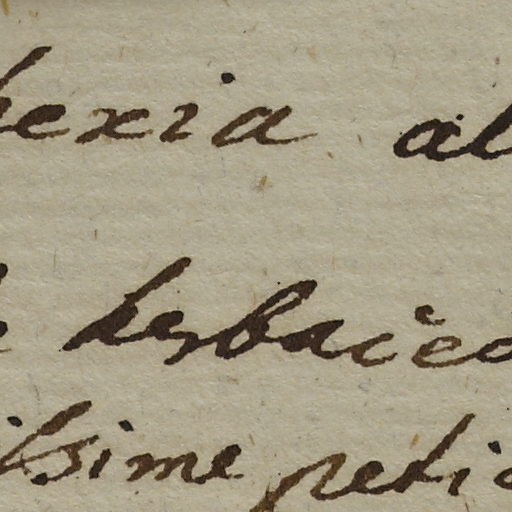 hexia al
herbaceo
ilsime petio